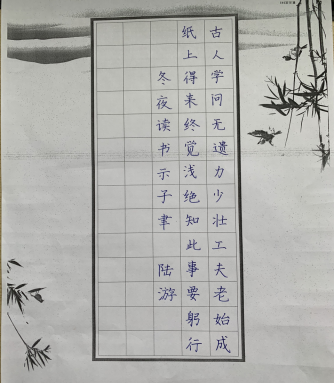 古人学问无遗力少壮工夫老始成
纸上得来终觉浅绝知此事要躬行
冬夜读书示子聿 陆游